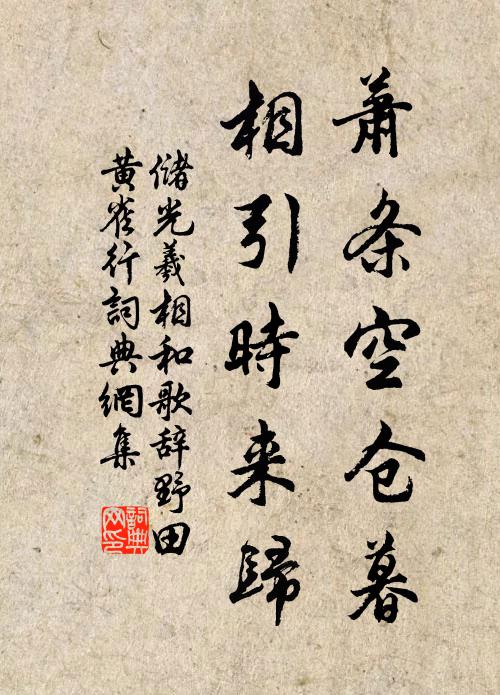 萧条空仓暮
相引時来歸
储光羲相和歌辞野田
黄雀行詞典網集
詞典
网印